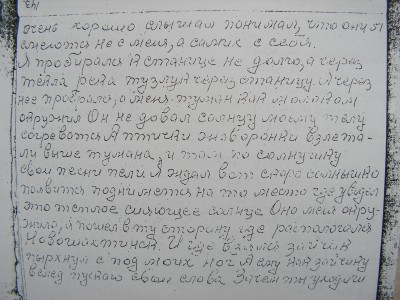 очень хорошо слышал понимал, что они
смеются не с меня, а самих с себя.
Я пробирался в станице не долго, а через
текла река тузлук через станицу. Я через
нее пробирался, а меня туман как молоком
окружил Он не довал солнцу моему телу
согреватся А птички жаворонки взлета-
ли выше тумана, и там по солнушку
свои песни пели Я ждал вот скоро солнышко
появится поднимется на то место где увидел
это теплое сияющее солнце Оно меня окру-
жило, я пошел в ту сторону где распологался
Новошахтинск. И где взялся зайчик
пырхнул с под моих ног А ему как зайчику
вслед пускаю свои слова Зачем ты уходиш